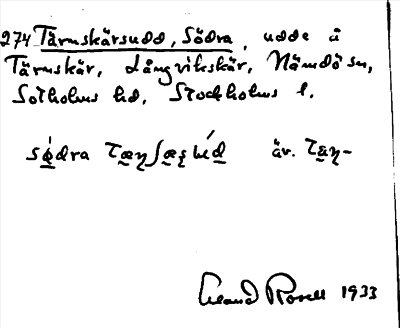 274 Tärnskärsudd, Södra, udde å
Tärnskär, Långvikskär, Nämdö sn,
Sotholms hd, Stockholms l.
södra
äv.
Erland Rosell 1933